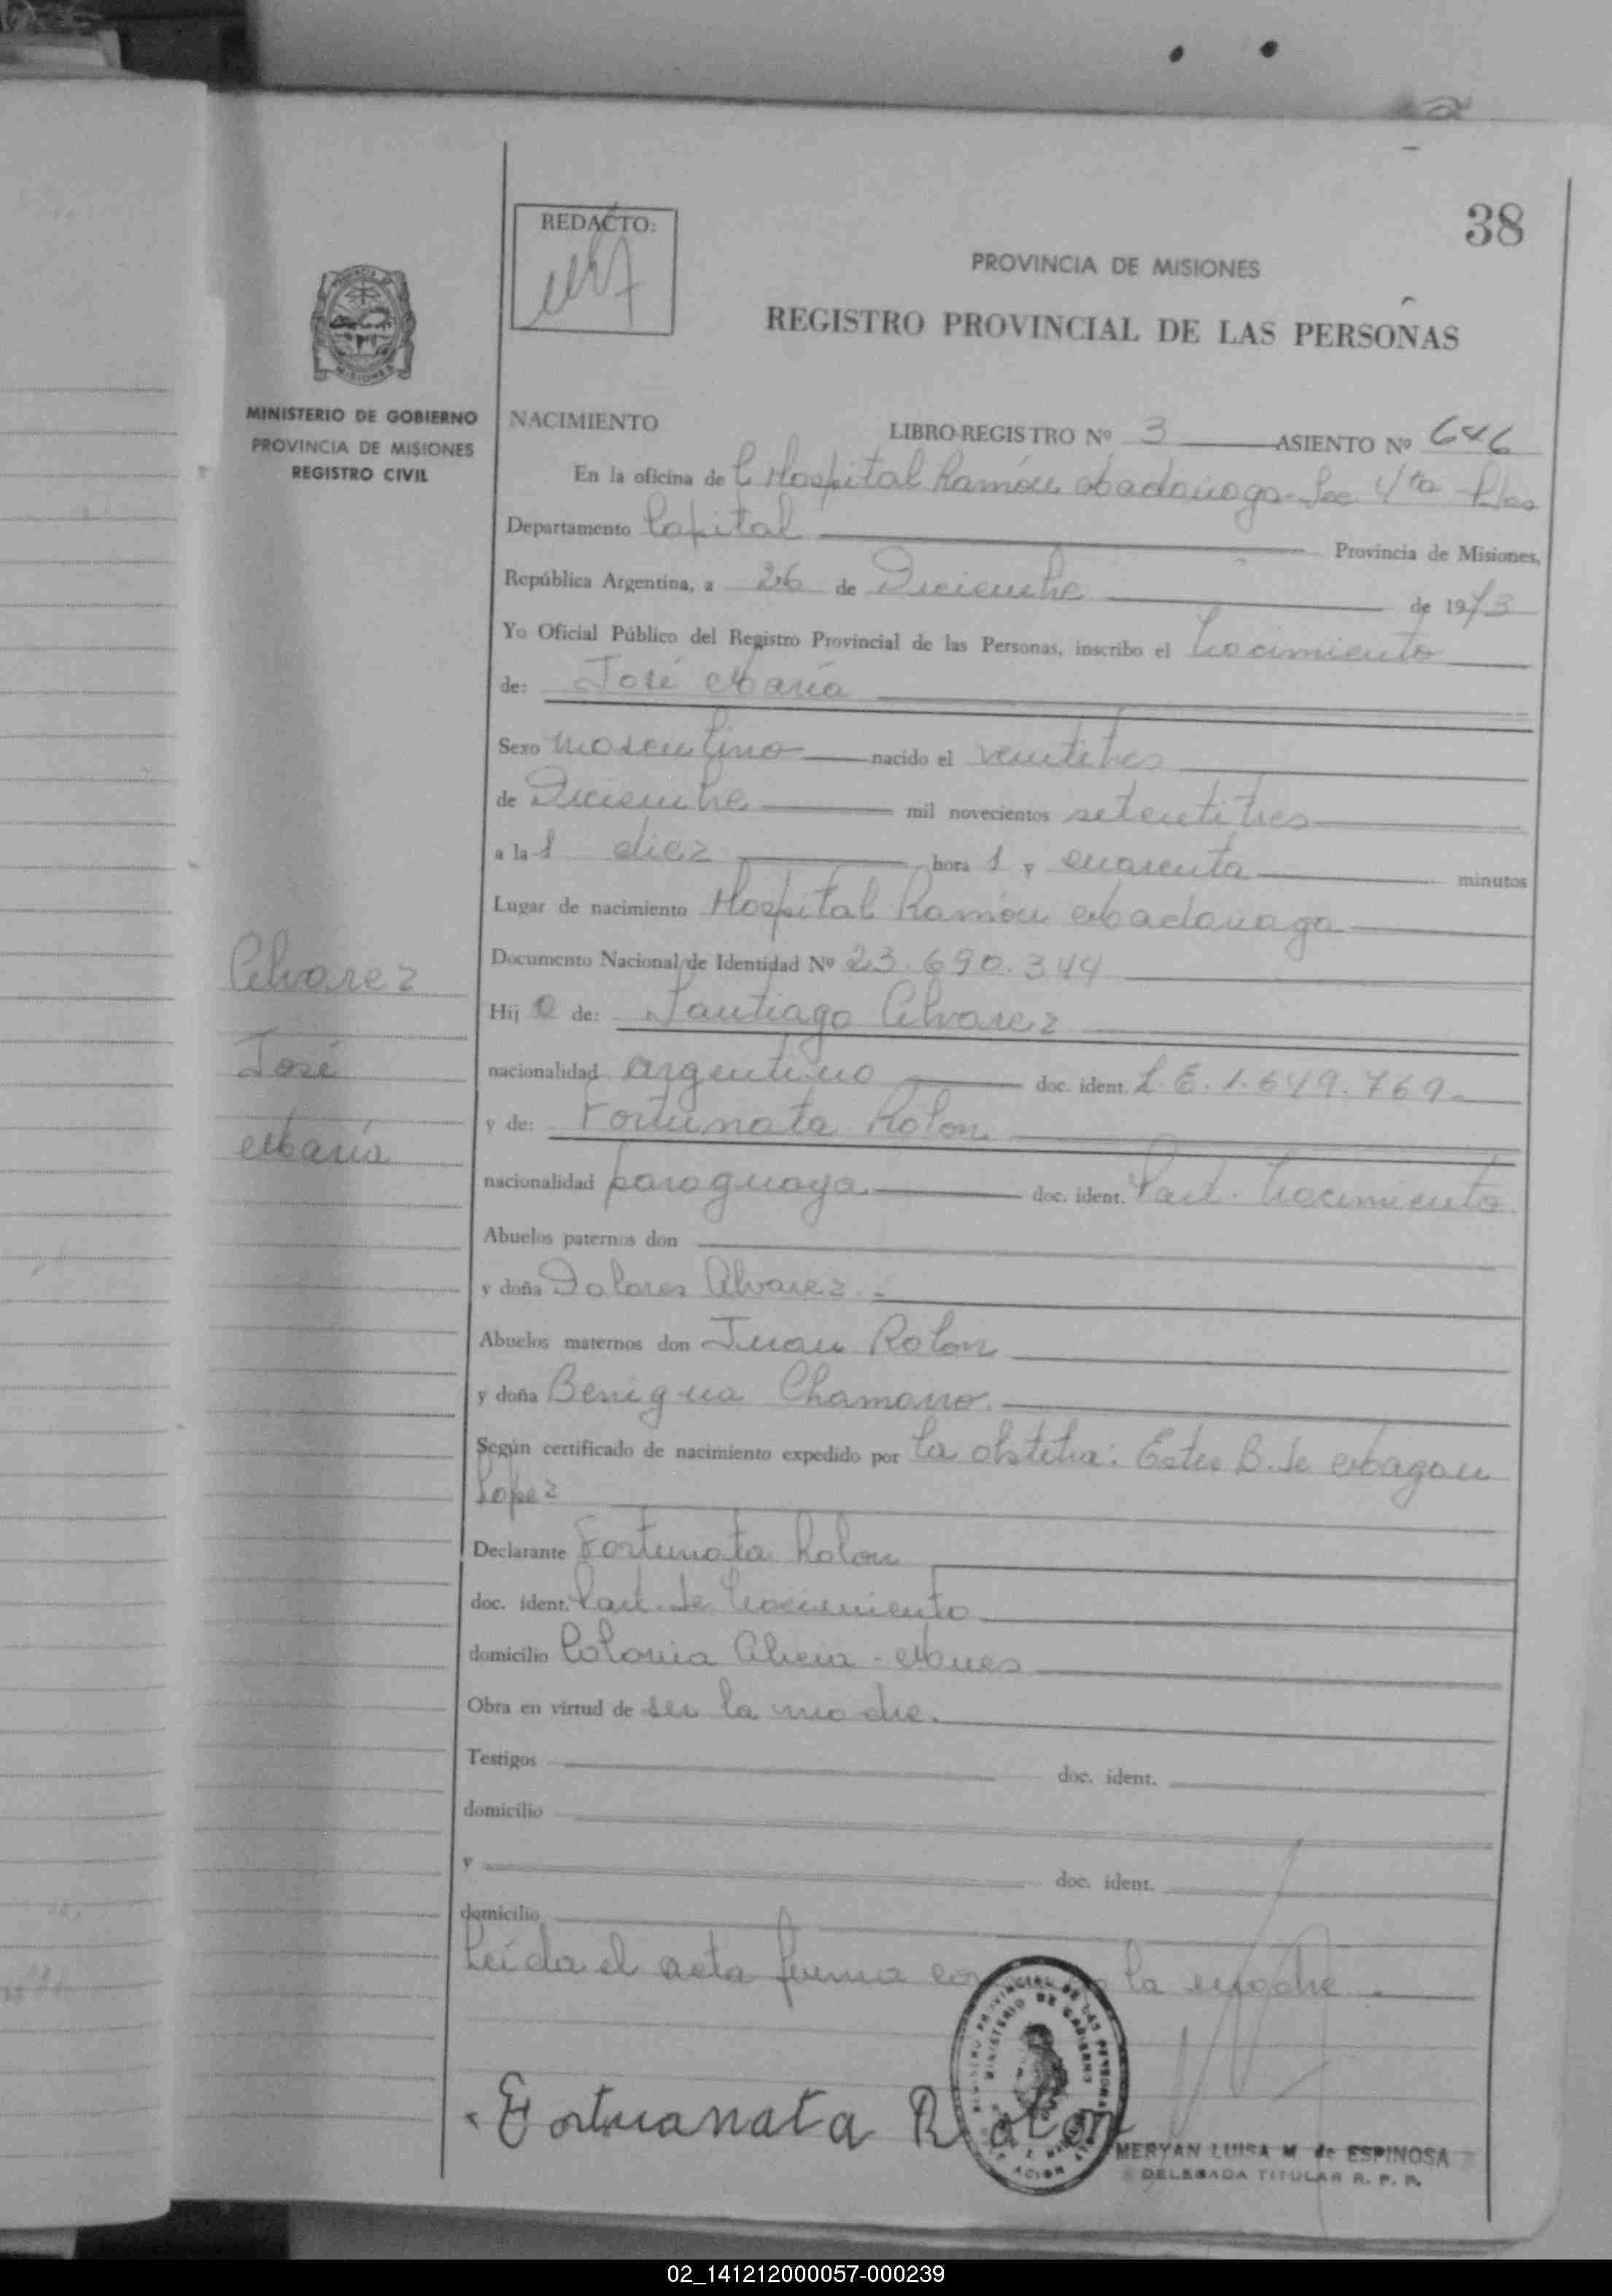 38
REDACTO:
PROVINCIA DE MISIONES
REGISTRO PROVINCIAL DE LAS PERSONAS
MISIONES
MINISTERIO DE GOBIERNO
PROVINCIA DE MISIONES
REGISTRO CIVIL
NACIMIENTO LIBRO-REGISTRO Nº 3 ASIENTO Nº 646
En la oficina de Hospital Ramón Madariaga - Sec 4ta Pdas
Departamento Capital Provincia de Misiones,
República Argentina, a 26 de Diciembre de 1973
Yo Oficial Público del Registro Provincial de las Personas, inscribo el Nacimiento
de: José María
Sexo masculino nacido el veintitres
de Diciembre mil novecientos setentitres
a la s diez hora s y cuarenta minutos
Lugar de nacimiento Hospital Ramón Madariaga
Documento Nacional de Identidad Nº 23.690.344
Hij o de: Santiago Alvarez
nacionalidad argentino doc. ident. L.E. 1.649.769
y de: Fortunata Rolon
nacionalidad paraguaya doc. ident. Part. Nacimiento
Abuelos paternos don
y doña Dolores Alvarez.-
Abuelos maternos don Juan Rolon
y doña Benigna Chamorro.
Según certificado de nacimiento expedido por la obstetra: Ester B. de
Lopez
Declarante Fortunata Rolon
doc. ident. Part. de Nacimiento
domicilio Colonia
Obra en virtud de ser la madre.
Testigos doc. ident.
domicilio
y doc. ident.
domicilio
Leída el acta firma la madre.
Alvarez
José
María
Fortuanata Rolon
MERYAN LUISA M. de ESPINOSA
DELEGADA TITULAR R. P. P.
02_141212000057-000239